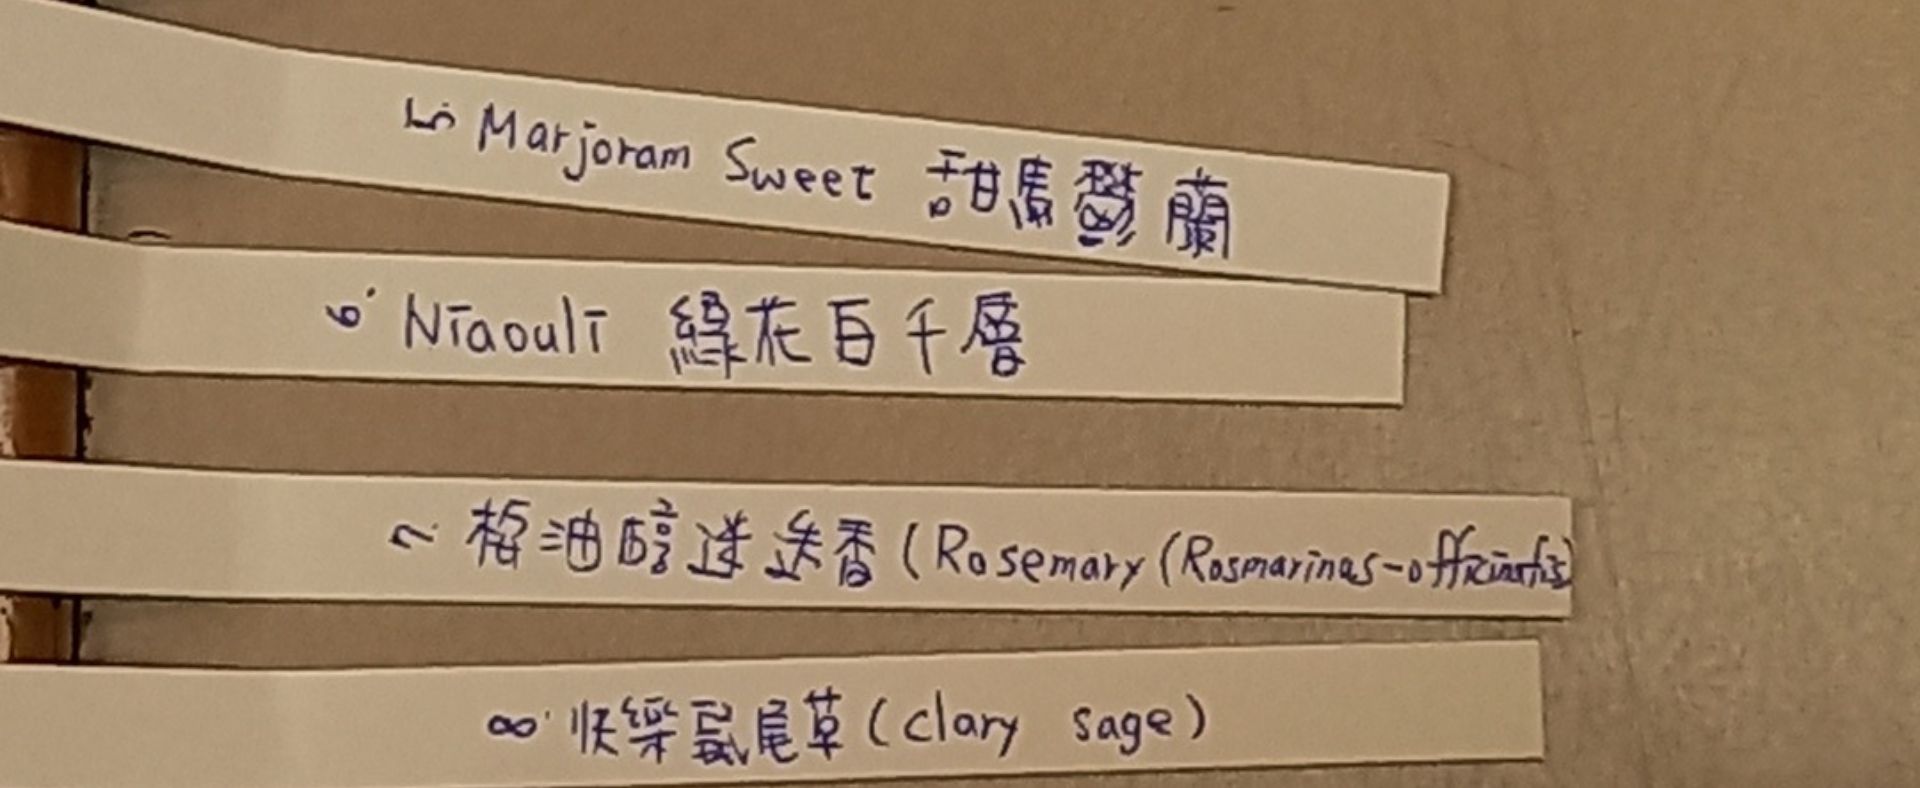 5. Marjoram Sweet 甜馬鬱蘭
6. Niaouli 綠花百千層
7. 桉油醇迷迭香 (Rosemary (Rosmarinas-officinalis)
8. 快樂鼠尾草 (clary sage)